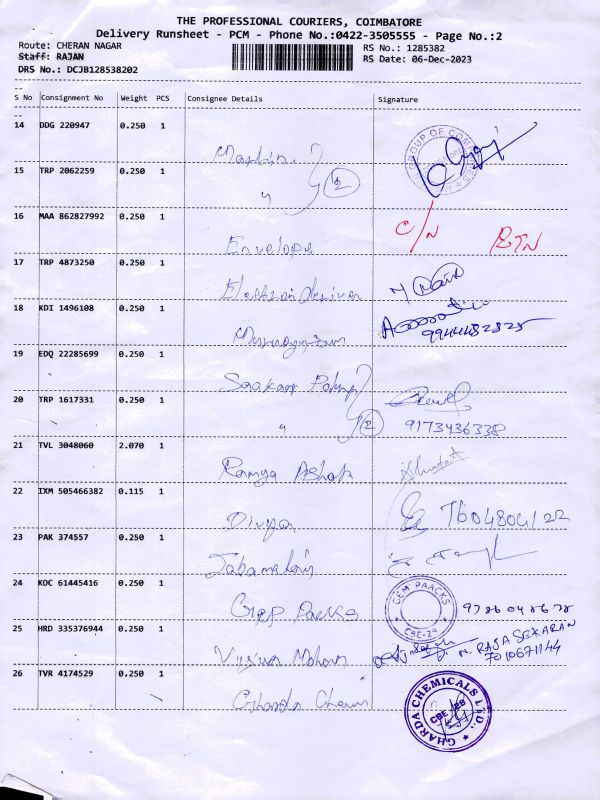 THE PROFESSIONAL COURIERS, COIMBATORE
Delivery Runsheet - PCM - Phone No.:0422-3505555 - Page No.:2
Route: CHERAN NAGAR RS No.: 1285382
Staff: RAJAN RS Date: 06-Dec-2023
DRS No.: DCJB128538202
--
S No Consignment No Weight PCS Consignee Details Signature
--
14 DDG 220947 0.250 1
GROUP OF
15 TRP 2062259 0.250 1
" 2
16 MAA 862827992 0.250 1
Envelope C/N RTN
17 TRP 4873250 0.250 1
18 KDI 1496108 0.250 1
9944482525
19 EDQ 22285699 0.250 1
20 TRP 1617331 0.250 1
" 2 9173436338
21 TVL 3048060 2.070 1
Ramya Ashok
22 IXM 505466382 0.115 1
Divya 7604804122
23 PAK 374557 0.250 1
24 KOC 61445416 0.250 1
Gem Paacks GEM PAACKS CBE-22
25 HRD 335376944 0.250 1
Mohan N. RAJA SEKARAN
7010671144
26 TVR 4174529 0.250 1
Gharda Chem GHARDA CHEMICALS LTD.,